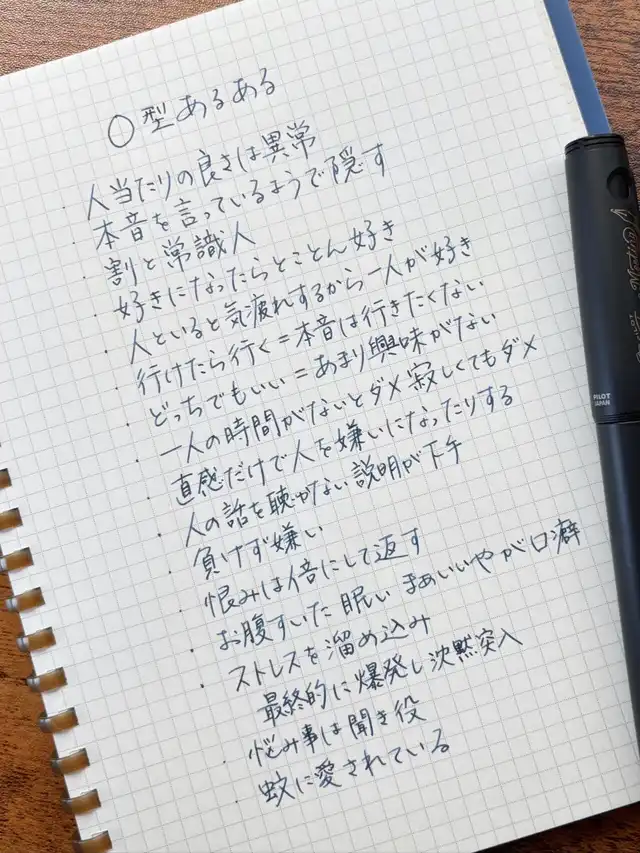 ○型あるある
・人当たりの良さは異常
・本音を言っているようで隠す
・割と常識人
・好きになったらとことん好き
・人といると気疲れするから一人が好き
・行けたら行く=本音は行きたくない
・どっちでもいい=あまり興味がない
・一人の時間がないとダメ 寂しくてもダメ
・直感だけで人を嫌いになったりする
・人の話を聴かない 説明が下手
・負けず嫌い
・恨みは倍にして返す
・お腹すいた 眠い まぁいいやが口癖
・ストレスを溜め込み
最終的に爆発し沈黙突入
・悩み事は聞き役
・蚊に愛されている
PILOT
JAPAN